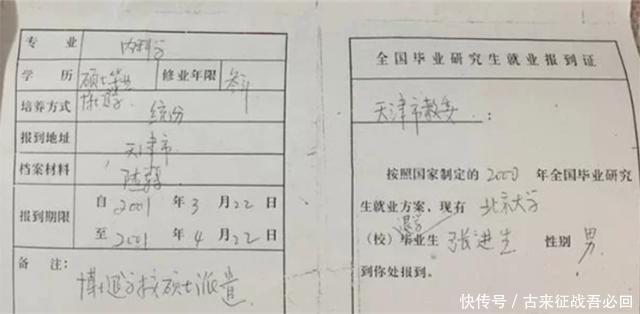 专业 内科学
学历 硕士毕业 博士退学 修业年限 叁年
培养方式 统分
报到地址 天津市
档案材料
报到期限
自 2001 年 3 月 22 日
至 2001 年 4 月 22 日
备注：
博士退学按硕士派遣
全国毕业研究生就业报到证
天津市教委：
按照国家制定的 2000 年全国毕业研究
生就业方案，现有 北京大学
退学
(校) 毕业生 张进生 性别 男
到你处报到。
快传号 / 古来征战吾必回